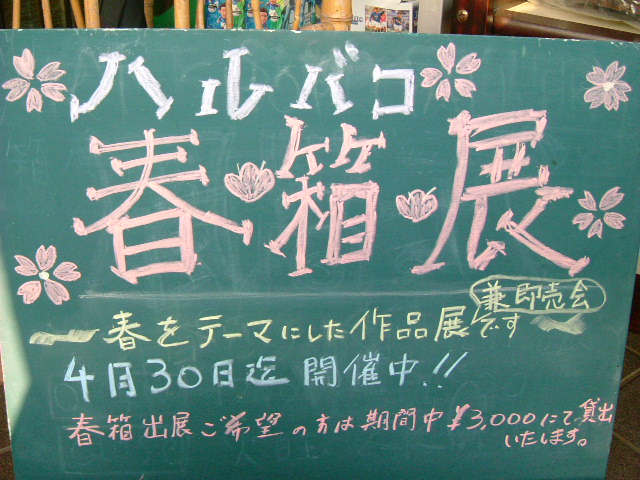 ハルバコ
春箱展
兼即売会
春をテーマにした作品展です
4月30日迄 開催中!!
春箱出展ご希望の方は期間中¥3,000にて貸出
いたします。